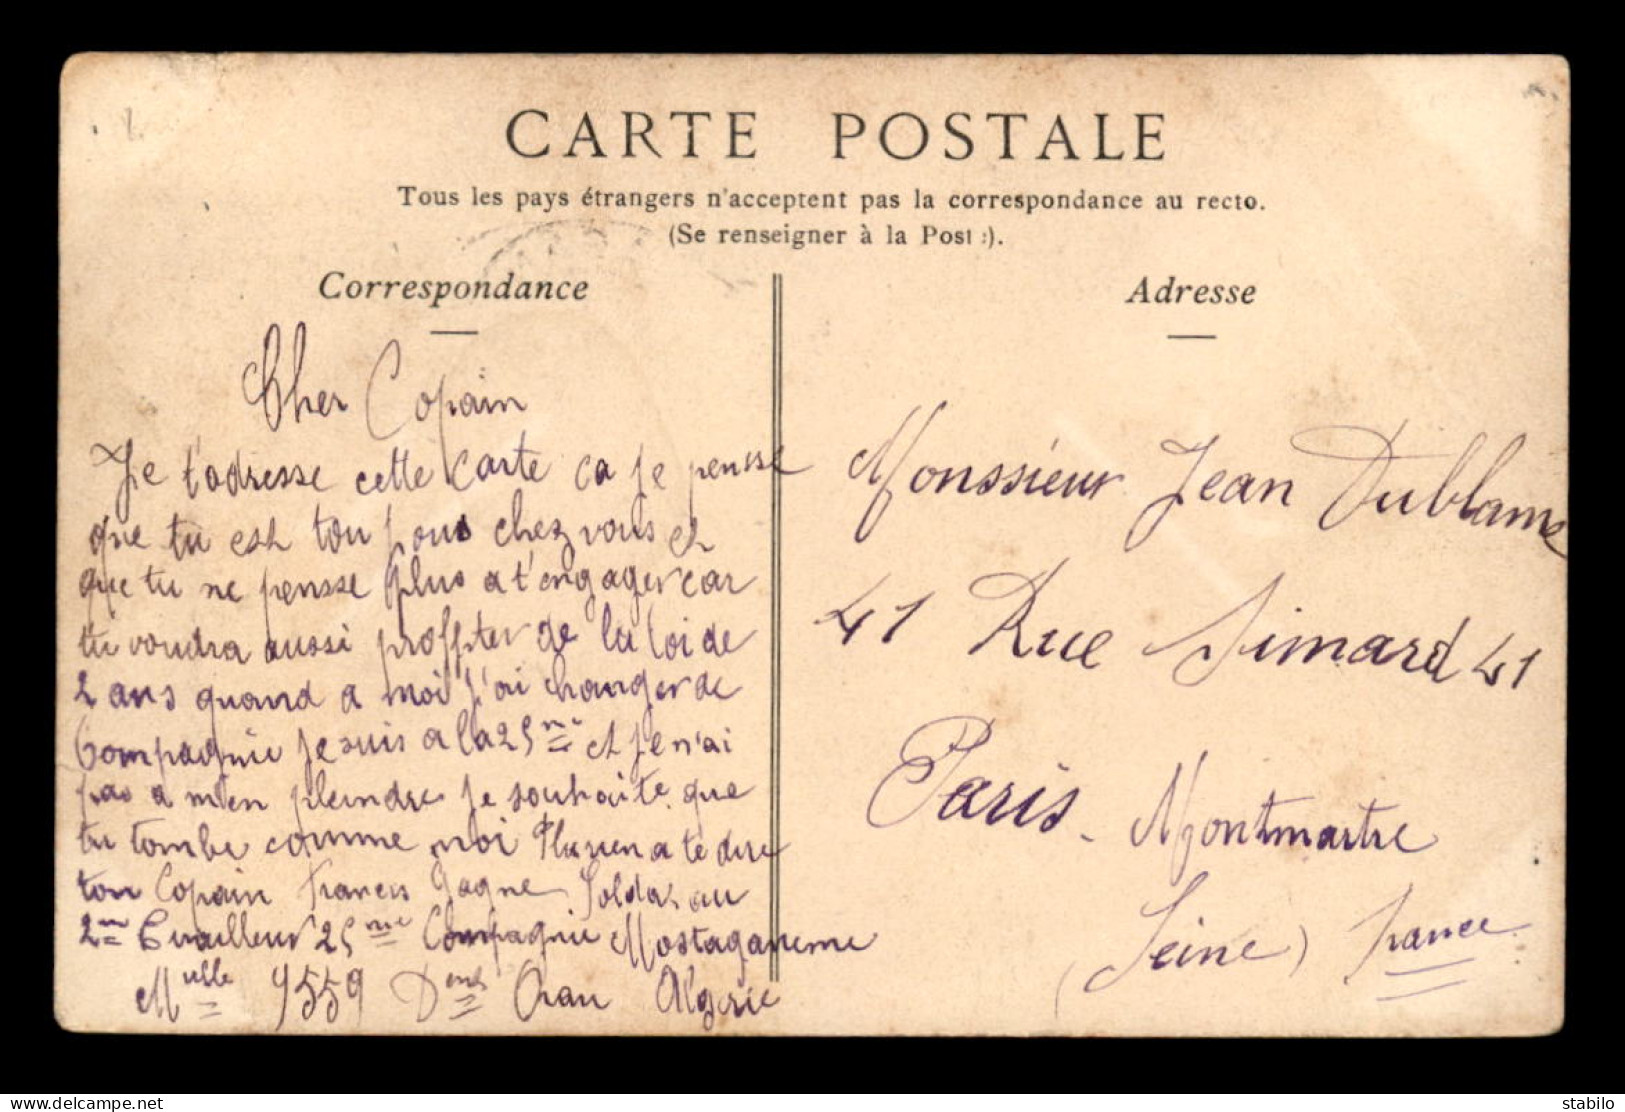 CARTE POSTALE
Tous les pays étrangers n'acceptent pas la correspondance au recto.
(Se renseigner à la Poste).
Correspondance
Cher Copain
Je t'adresse cette carte ca je pensse
que tu est tou jous chez vous et
que tu ne pensse plus a t'engager car
tu voudra aussi proffter de la loi de
2 ans quand a moi j'ai changer de
Compagnie je suis a la 25me et je n'ai
pas a m'en pleindre je souhaite que
tu tombe comme moi Plu rien a te dire
ton Copain Francis Gagne Soldat au
2me Tirailleur 25me Compagnie Mostaganeme
Mlle 9559 Oran Algerie
Adresse
Monssieur Jean Dublame
41 Rue Simard 41
Paris - Montmartre
(Seine) France
stabilo